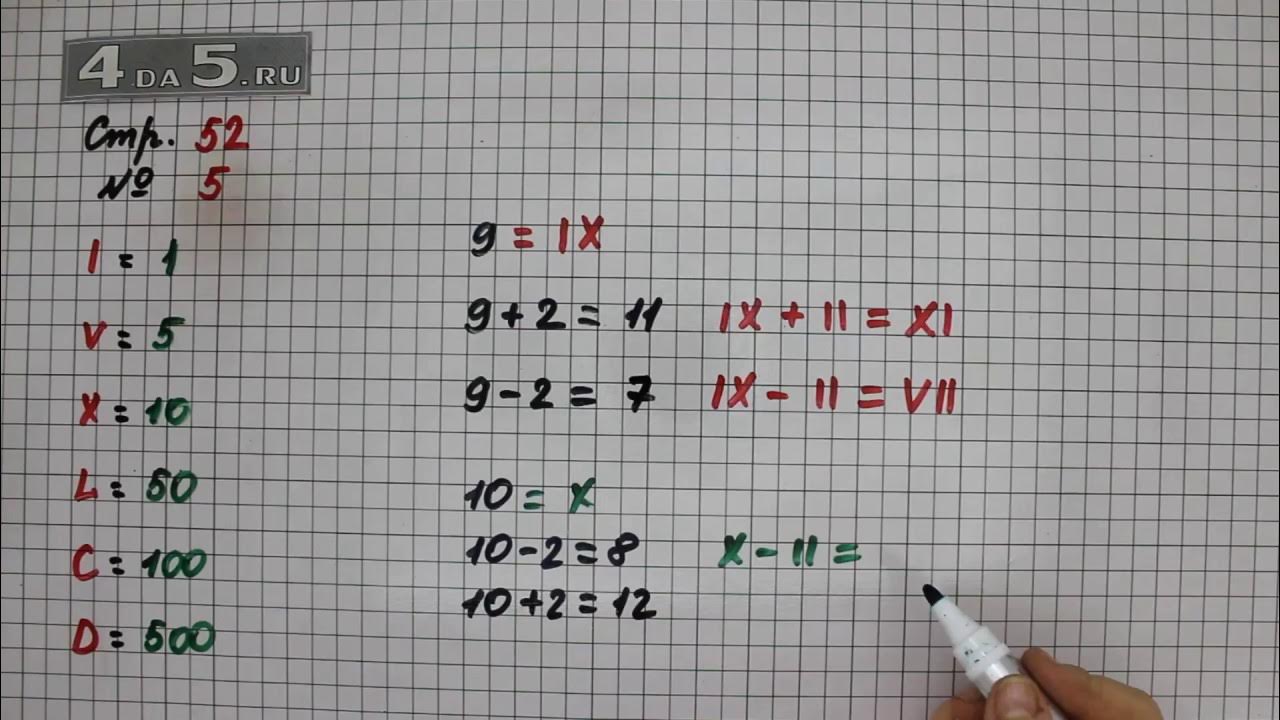 4 DA 5.RU
Стр. 52
№ 5
I = 1
V = 5
X = 10
L = 50
C = 100
D = 500
9 = IX
9 + 2 = 11 IX + II = XI
9 - 2 = 7 IX - II = VII
10 = X
10 - 2 = 8 X - II =
10 + 2 = 12